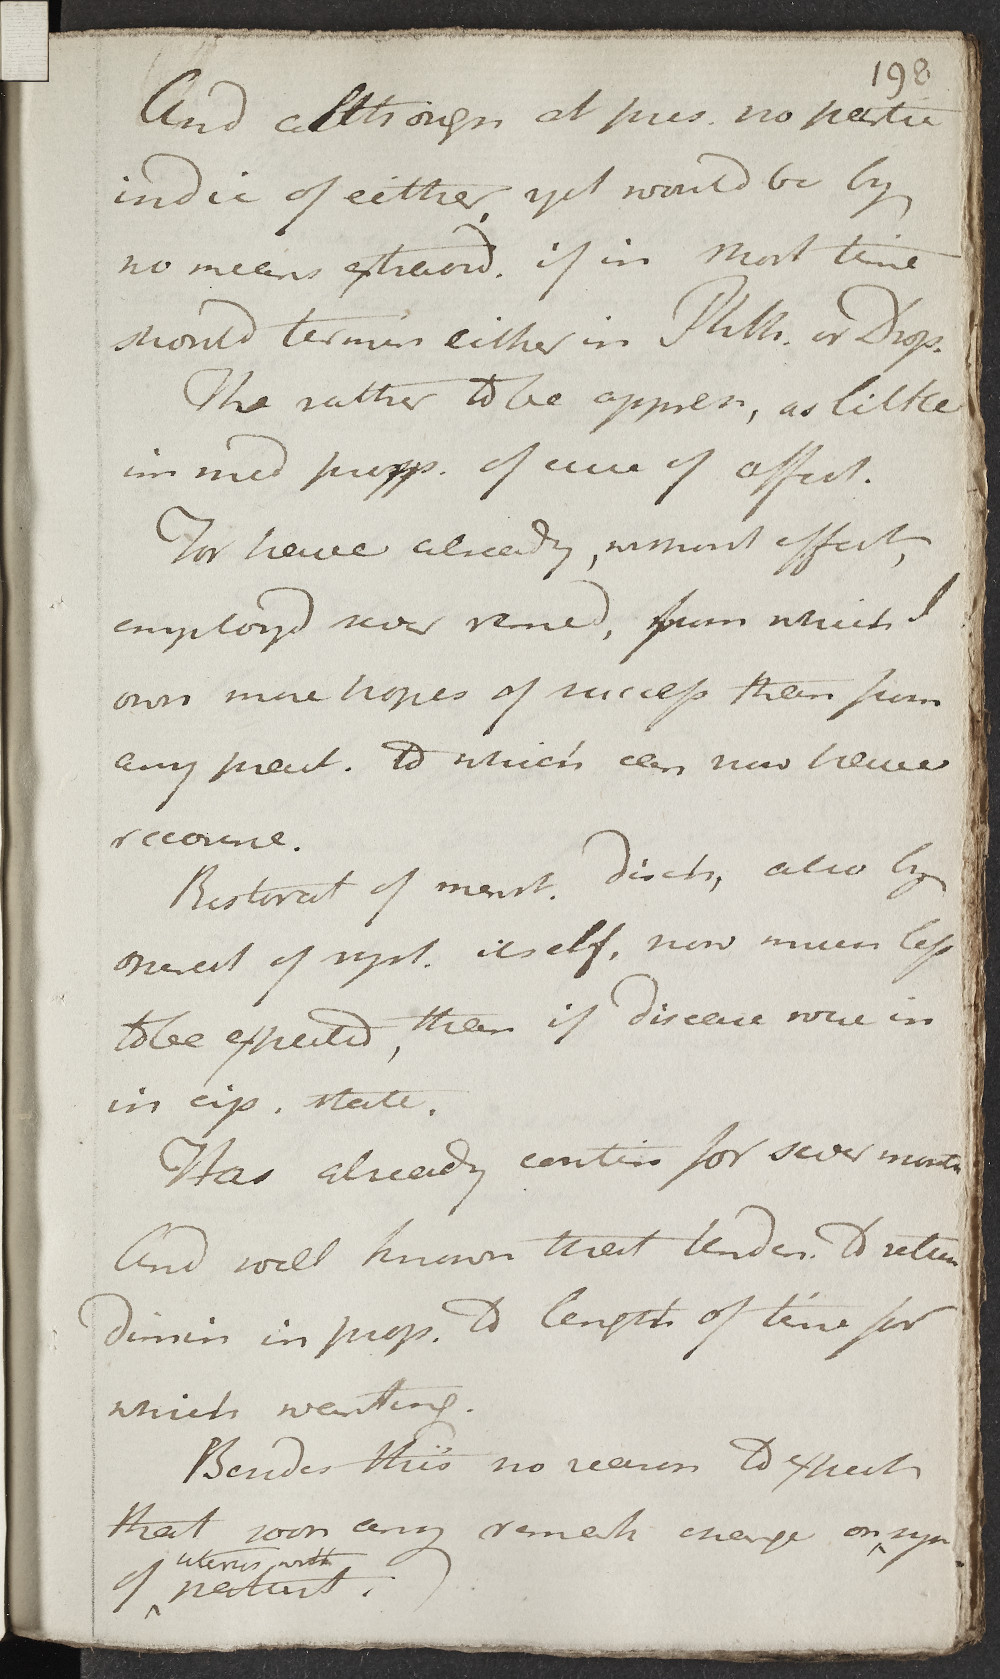 198
And altho'ugh at pres. no partic
indic of either, yet would be by
no means extraord. if in short time
should termin either in Phth. or Drop.
The rather to be appreh, as little
immed prosp. of cure of affect.
For have already, without effect,
employ'd sever remed, from which I
own more hopes of success than from
any pract. to which can now have
recourse.
Restorat of menst. disch, also by
of syst. itself, now much less
to be expected, than if disease were in
incip. state.
Has already contin for sever month
And well known that tenden. to return
dimin in prop. to length of time for
which wanting.
Besides this no reason to expect
that soon any remark change on syst
uterus with
of patient.